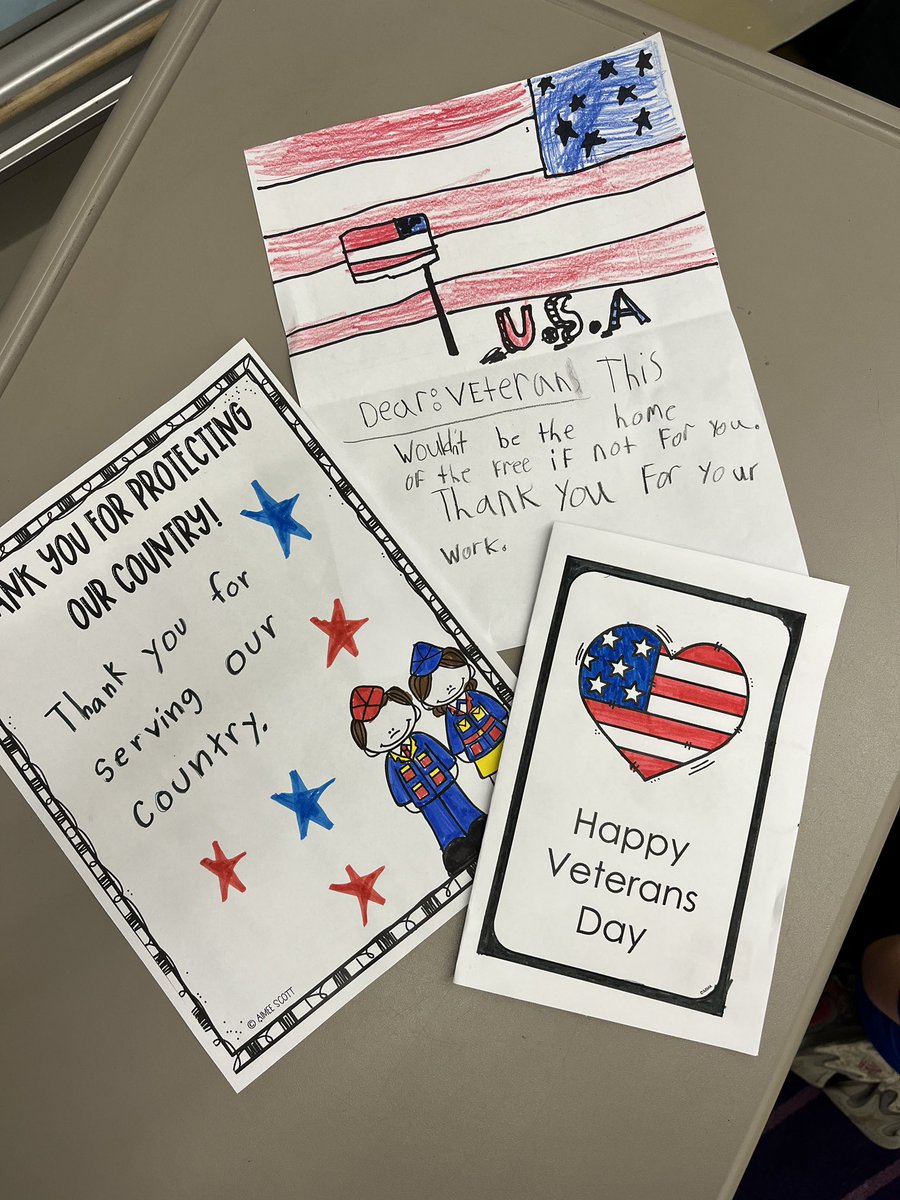 U.S.A
Dear: Veteran This
Wouldn't be the home
of the free if not For you.
Thank you For your
work.
ANK YOU FOR PROTECTING
OUR COUNTRY!
Thank you for
serving our
country.
© AIMEE SCOTT
Happy
Veterans
Day